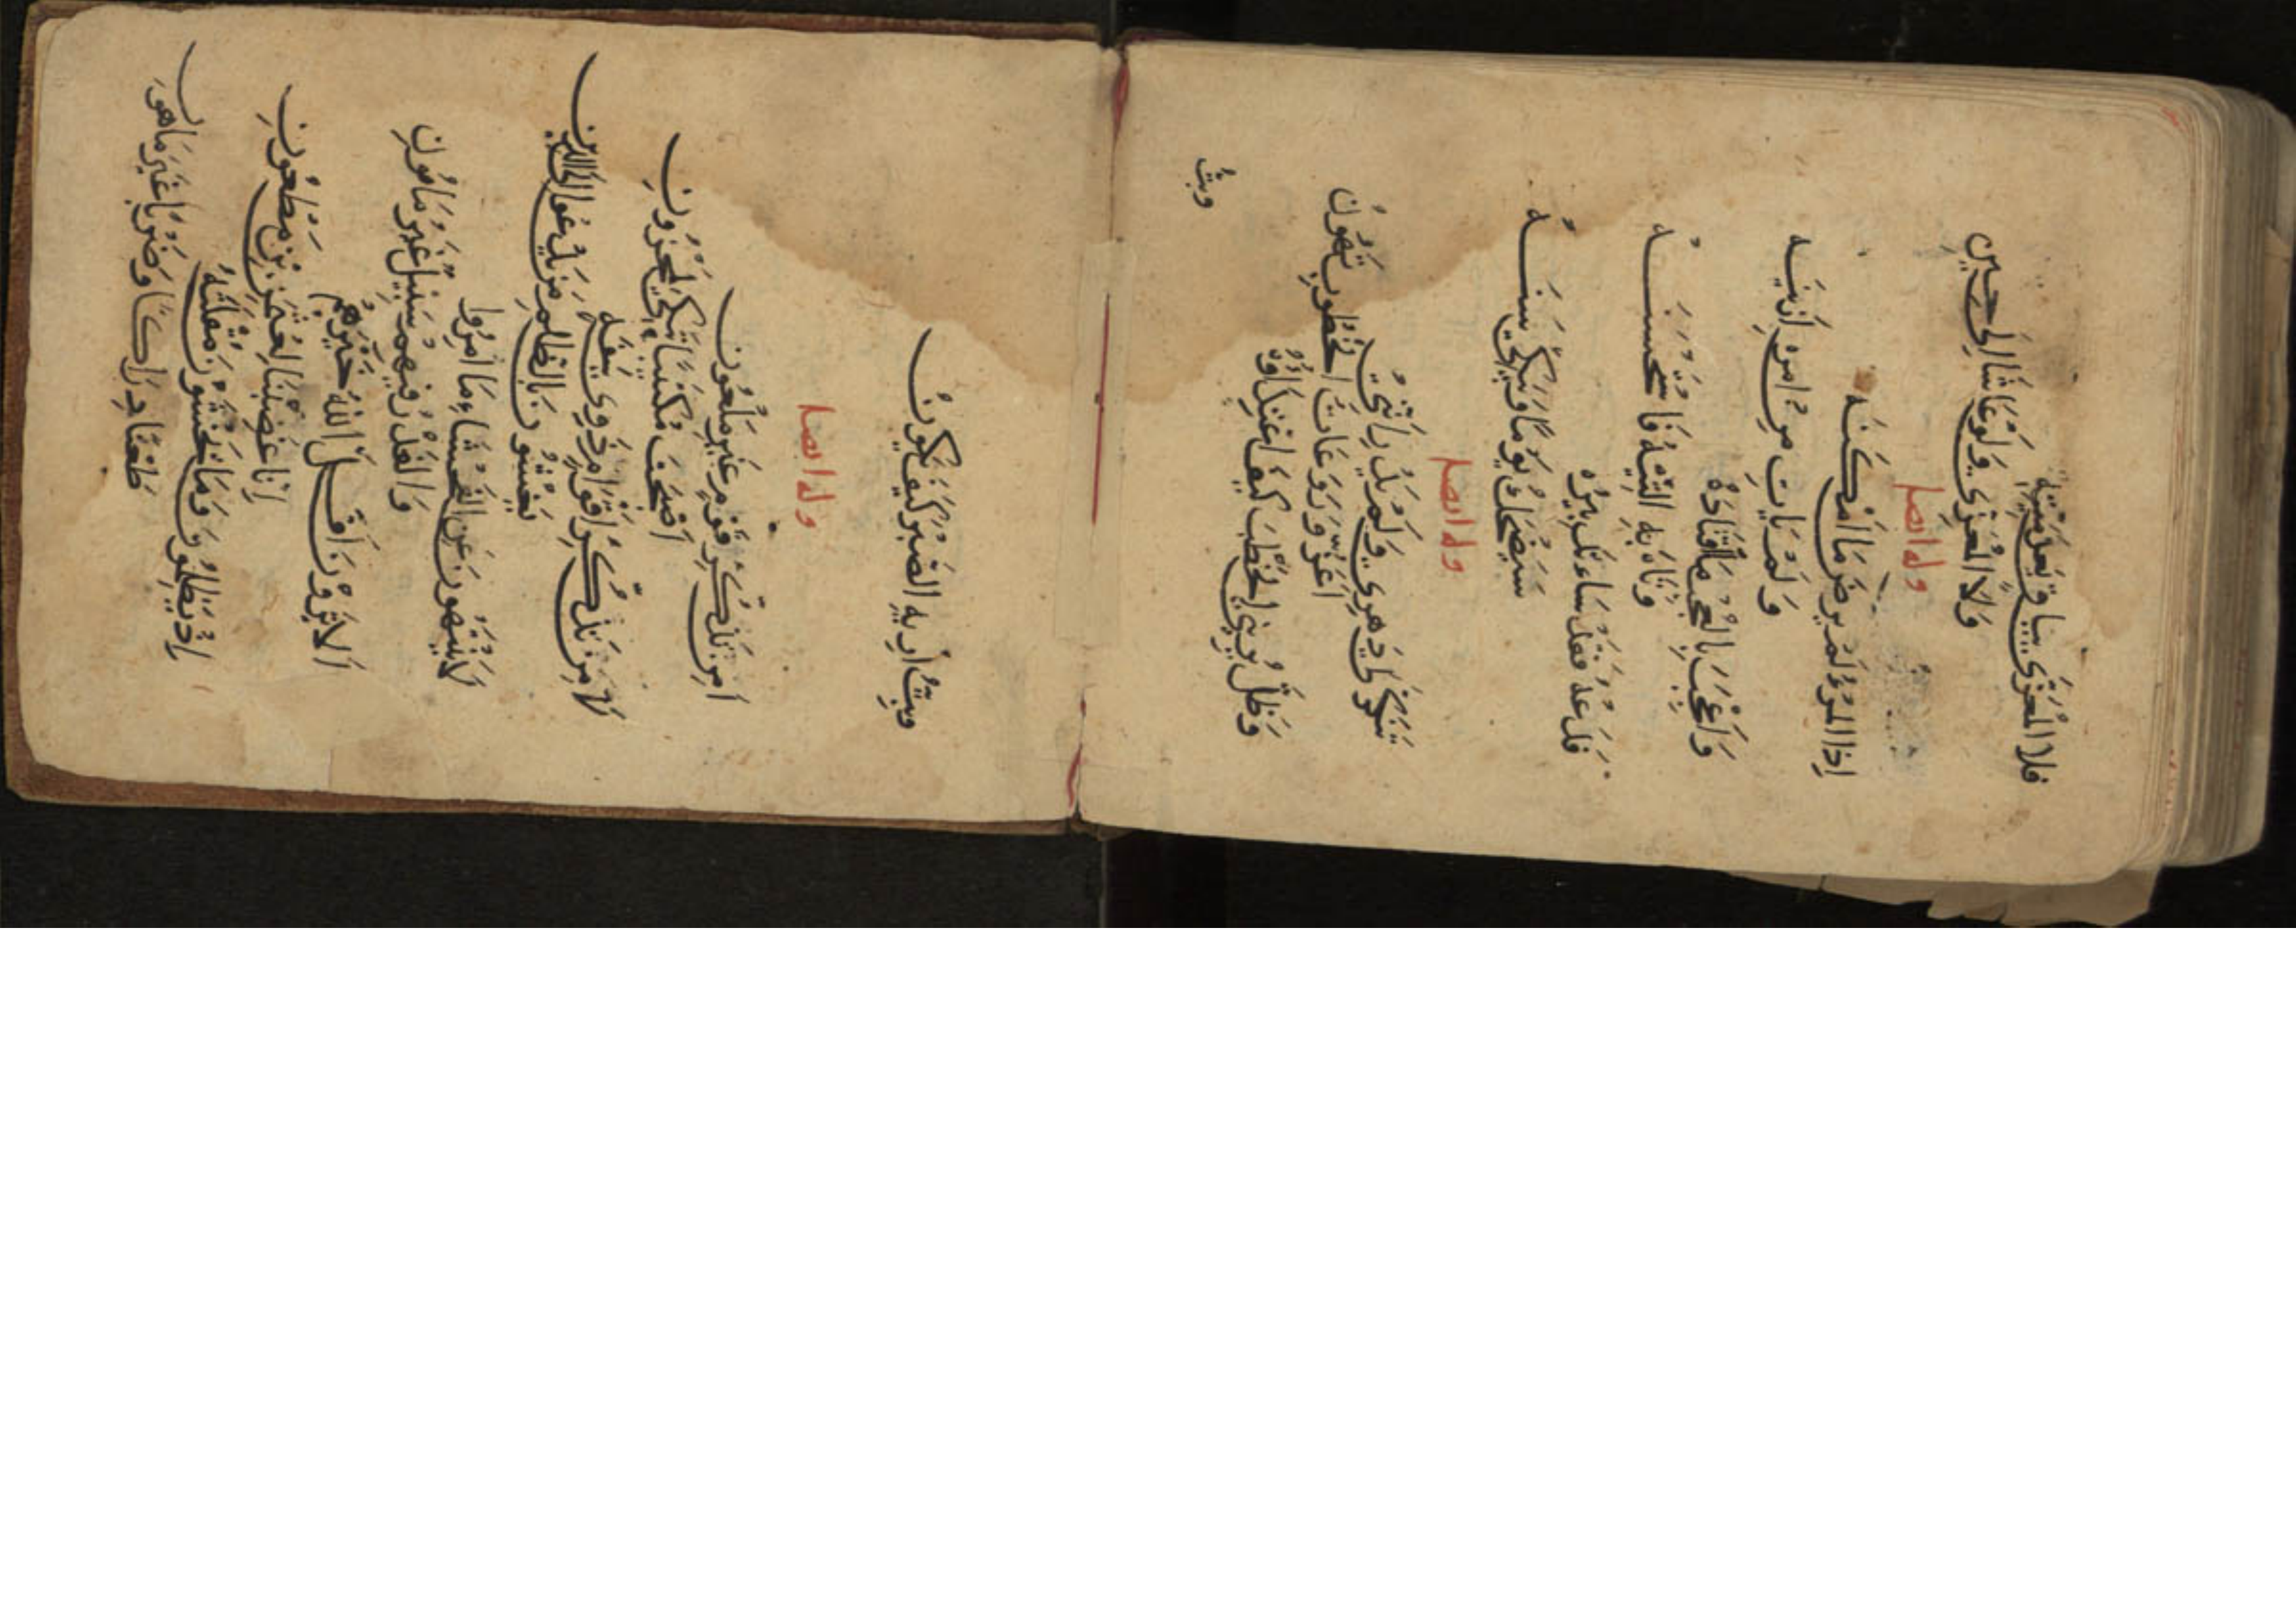 فلا المعزى بباق بعد ميته
ولا المعزي ولو عاشا الى حين
وله ايضا
اذا المرء لم يرض ما امكنه
ولم يات من امره ازينه
واعجب بالعجب فاقتاده
وتاه به التيه فاستحسنه
فدعه فقد ساء تدبيره
سيضحك يوما ويبكي سنه
وله ايضا
تنكر لي دهري ولم يدر انني
اعز وروعات الخطوب تهون
وظل يريني الخطب كيف اعتداؤه
وبت
وبت اريه الصبر كيف يكون
وله ايضا
امن تذكر قوم غير ملعون
اصبحت مكتئبا تبكي لمحزون
من تذكر اقوام ذوي سفه
يغشون بالظلم من يدعو الى الدين
لا ينتهون عن الفحشاء ما امروا
والغدر فيهم سبيل غير مامون
الا يرون اقل الله خيرهم
انا غضبنا لعثمن بن مظعون
اذ يلطمون وما يخشون مقلته
طعنا دراكا وضربا غير ماهون